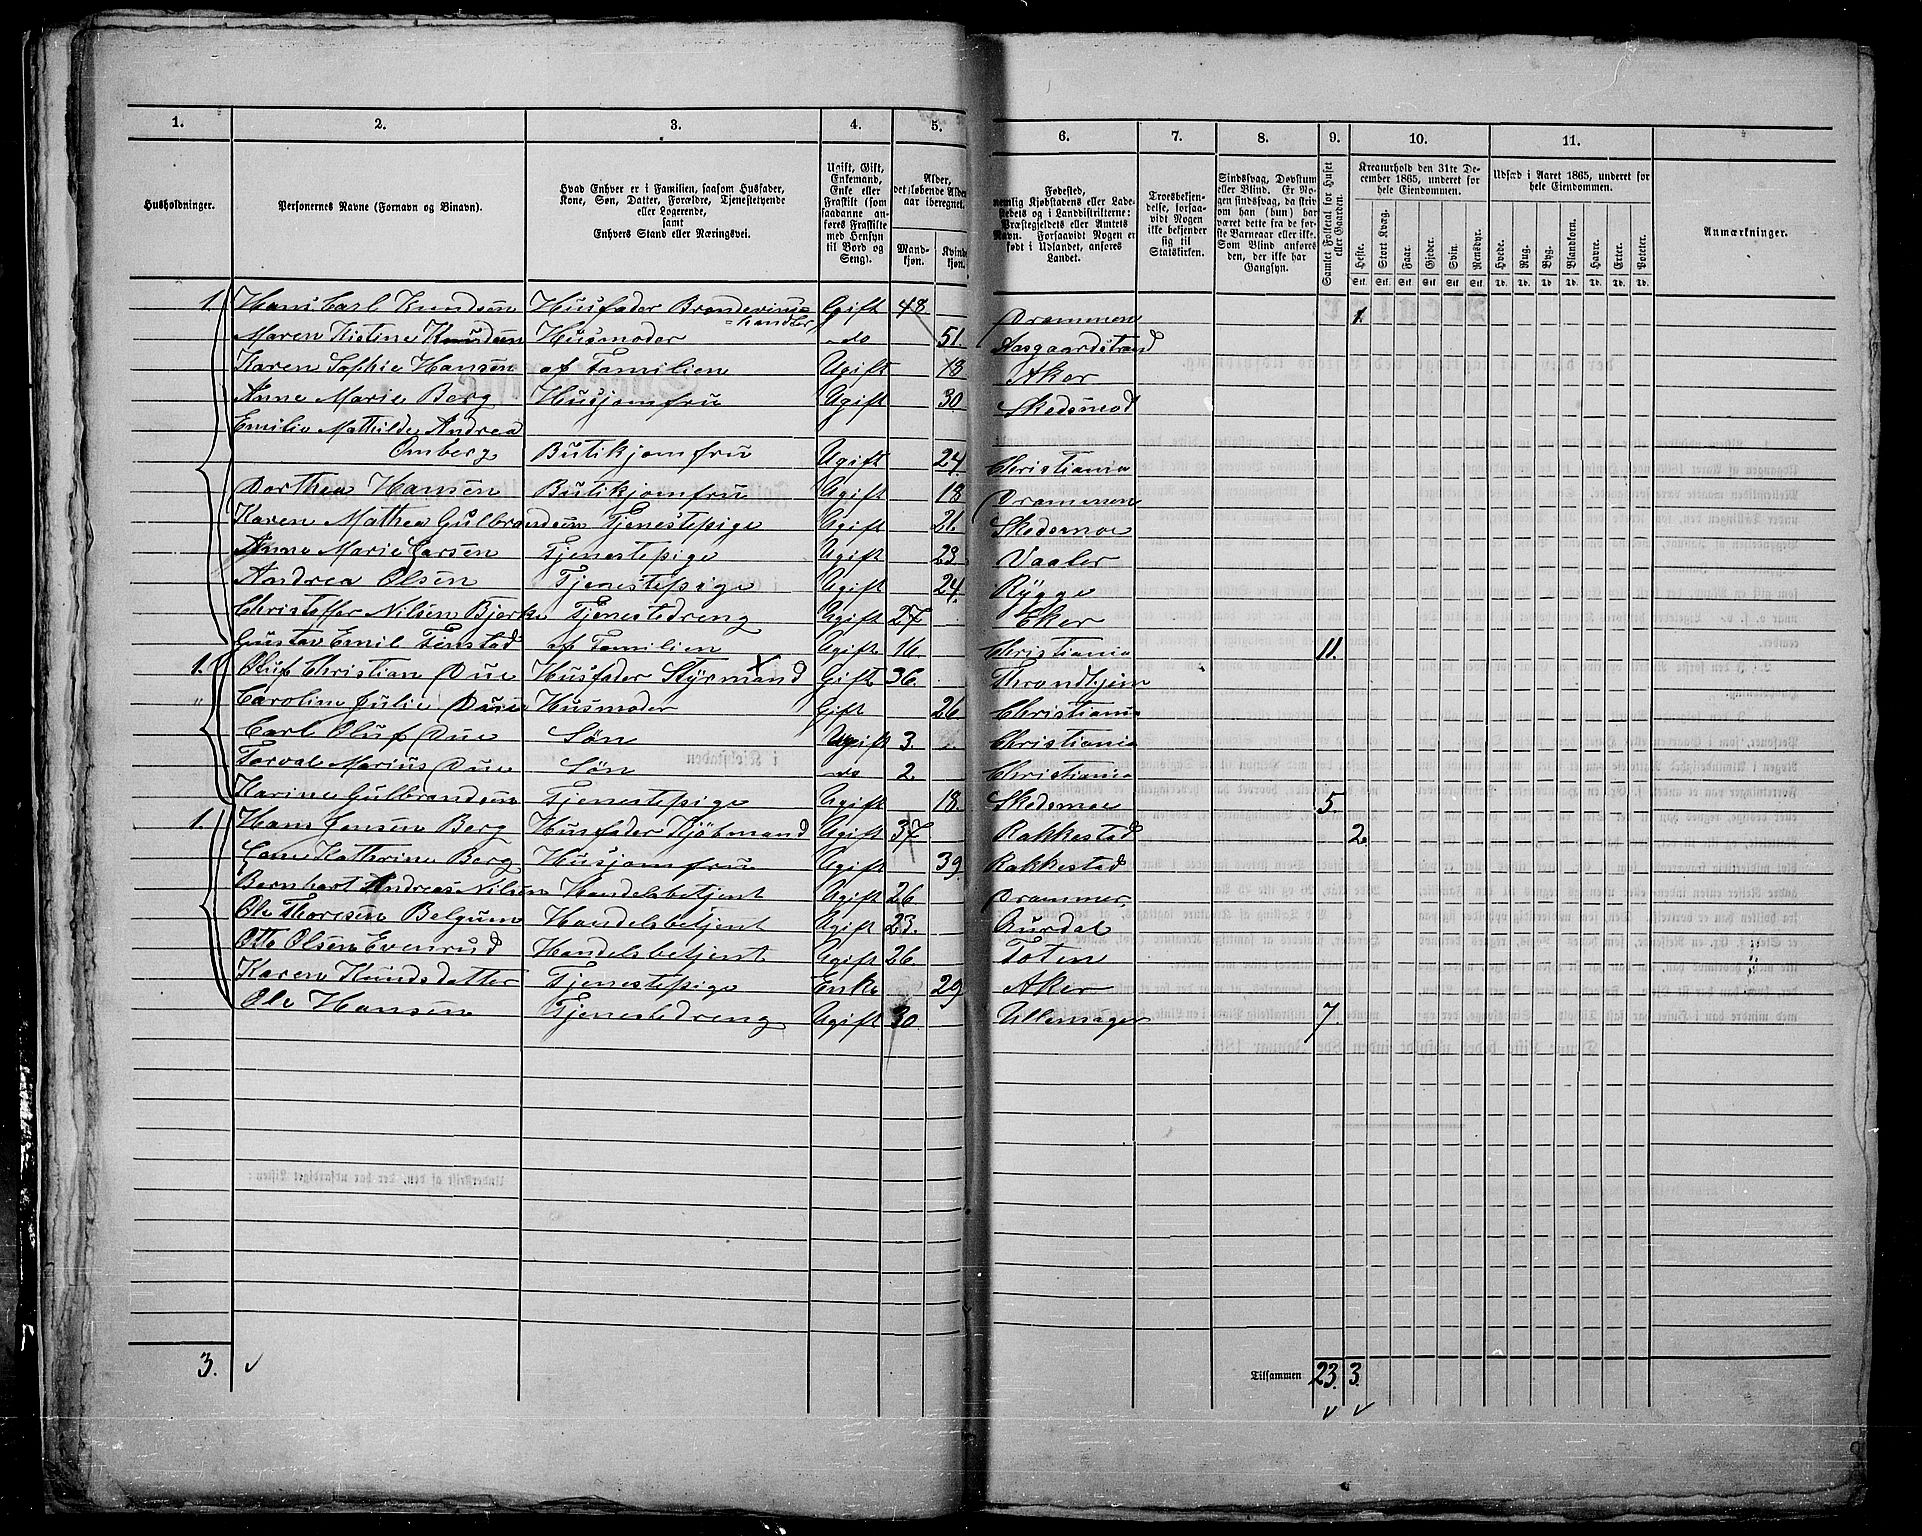 1. 2. 3. 4. 5. 6. 7. 8. 9. 10. 11.
Husholdninger.
Personernes Navne (Fornavn og Binavn).
Hvad Enhver er i Familien, saasom Husfader,
Kone, Søn, Datter, Forældre, Tjenestetyende
eller Logerende,
samt
Enhvers Stand eller Næringsvei.
Ugift, Gift,
Enkemand,
Enke eller
Fraskilt (som
saadanne an-
føres Fraskilte
med Hensyn
til Bord og
Seng).
Alder,
det løbende Alders-
aar iberegnet.
Mand-
kjøn.
Kvinde-
kjøn.
Fødested,
nemlig Kjøbstadens eller Lade-
stedets og i Landdistrikterne:
Præstegjeldets eller Amtets
Navn. Forsaavidt Nogen er
født i Udlandet, anføres
Landet.
Troesbekjen-
delse, forsaa-
vidt Nogen
ikke bekjender
sig til
Statskirken.
Sindssvag, Døvstum
eller Blind. Er No-
gen sindssvag, da skriv
om han (hun) har
været dette fra de før-
ste Barneaar eller ikke.
Som Blind anføres
den, der ikke har
Gangsyn.
Samlet Folketal for Huset
eller Gaarden.
Kreaturhold den 31te De-
cember 1865, underet for
hele Eiendommen.
Heste. Stort Kvæg. Faar. Gjeder. Svin. Rensdyr.
Stk. Stk. Stk. Stk. Stk. Stk.
Udsæd i Aaret 1865, underet for
hele Eiendommen.
Hvede. Rug. Byg. Blandkorn. Havre. Erter. Poteter.
Td. Td. Td. Td. Td. Td. Td.
Anmærkninger.
1. Hans Carl Knudsen Husfader Brændevins-handler Gift 48 Drammen 1.
Maren Kistine Knudsen Husmoder do 51. Aasgaardstrand
Karen Sophie Hansen af Familien Ugift 18 Aker
Anne Marie Berg Husjomfru Ugift 30 Skedsmod
Emilie Mathilde Andrea
Omberg Butikjomfru Ugift 24. Christiania
Dorthea Hansen Butikjomfru Ugift 18 Drammen
Karen Mathea Gulbrandsen Tjenestepige Ugift 21. Skedsmoe
Anne Marie Larsen Tjenestepige Ugift 23 Vaaler
Andrea Olsen Tjenestepige Ugift 24. Rygge
Christoffer Nilsen Bjerke Tjenestedreng Ugift 27 Eker
Gustav Emil Finstad af Familien Ugift 16. Christiania 11.
1. Oluf Christian Due Husfader Styrmand Gift 36. Throndhjem
" Caroline Julie Due Husmoder Gift 26 Christiania
Carl Oluf Due Søn Ugift 3. Christiania
Torval Marius Due Søn do 2. Christiania
Karine Gulbrandsen Tjenestepige Ugift 18. Skedsmoe 5.
1. Hans Jensen Berg Husfader Kjøbmand Ugift 37 Rakkestad 2.
Lane Kathrine Berg Husjomfru Ugift 39. Rakkestad
Bernhart Andreas Nilsen Handelsbetjent Ugift 26 Drammen
Ole Thoresen Belgum Handelsbetjent Ugift 23. Burdal
Otto Olsen Evenrud Handelsbetjent Ugift 26. Toten
Karen Knudsdatter Tjenestepige Enke 29 Aker
Ole Hansen Tjenestedreng Ugift 30 Ullensager 7.
3. Tilsammen 23. 3.